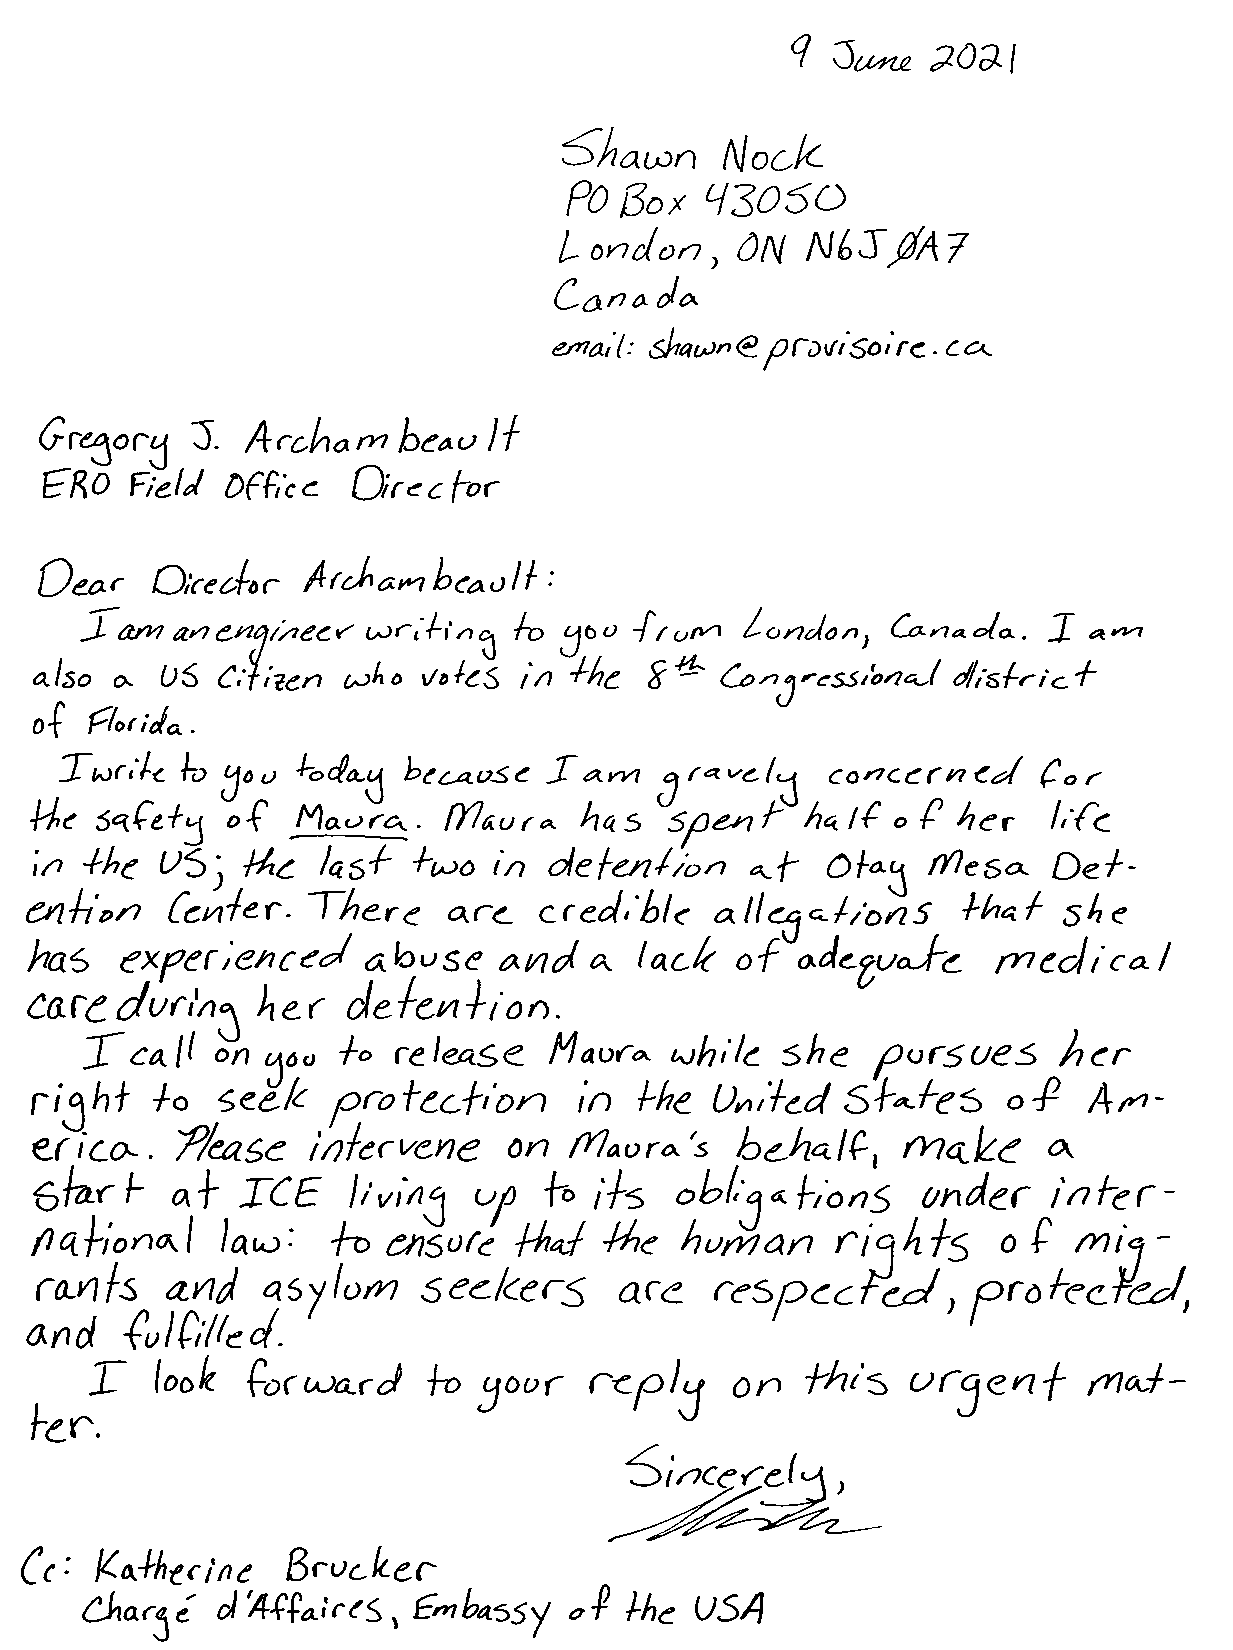 9 June 2021
Shawn Nock
PO Box 43050
London, ON N6J 0A7
Canada
email: shawn@provisoire.ca
Gregory J. Archambeault
ERO Field Office Director
Dear Director Archambeault:
I am an engineer writing to you from London, Canada. I am
also a US Citizen who votes in the 8th Congressional district
of Florida.
I write to you today because I am gravely concerned for
the safety of Maura. Maura has spent half of her life
in the US; the last two in detention at Otay Mesa Det-
ention Center. There are credible allegations that she
has experienced abuse and a lack of adequate medical
care during her detention.
I call on you to release Maura while she pursues her
right to seek protection in the United States of Am-
erica. Please intervene on Maura's behalf, make a
start at ICE living up to its obligations under inter-
national law: to ensure that the human rights of mig-
rants and asylum seekers are respected, protected,
and fulfilled.
I look forward to your reply on this urgent mat-
ter.
Sincerely,
Cc: Katherine Brucker
Chargé d'Affaires, Embassy of the USA